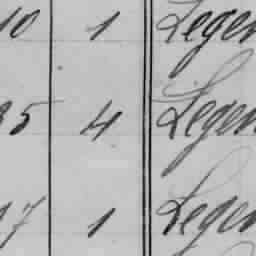 10 1 Legen
35 4 Legen
17 1 Legen